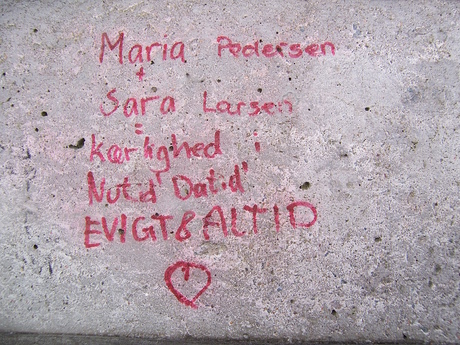 Maria Pedersen
+
Sara Larsen
=
kærlighed i
Nutid' Datid'
EVIGT & ALTID